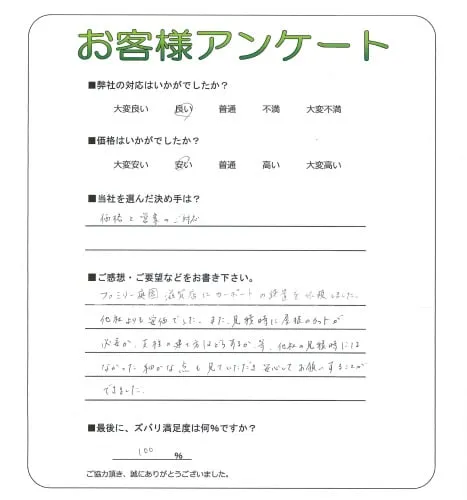 お客様アンケート
■弊社の対応はいかがでしたか？
大変良い 良い 普通 不満 大変不満
■価格はいかがでしたか？
大変安い 安い 普通 高い 大変高い
■当社を選んだ決め手は？
価格と営業のご対応
■ご感想・ご要望などをお書き下さい。
ファミリー庭園 滋賀店にカーポートの設置を依頼しました。
他社よりも安価でした。また、見積時に屋根のカットが
必要か、支柱の建て方はどうするか等、他社の見積時には
なかった細かな点も見ていただき安心してお願いすることが
できました。
■最後に、ズバリ満足度は何％ですか？
100 ％
ご協力頂き、誠にありがとうございました。